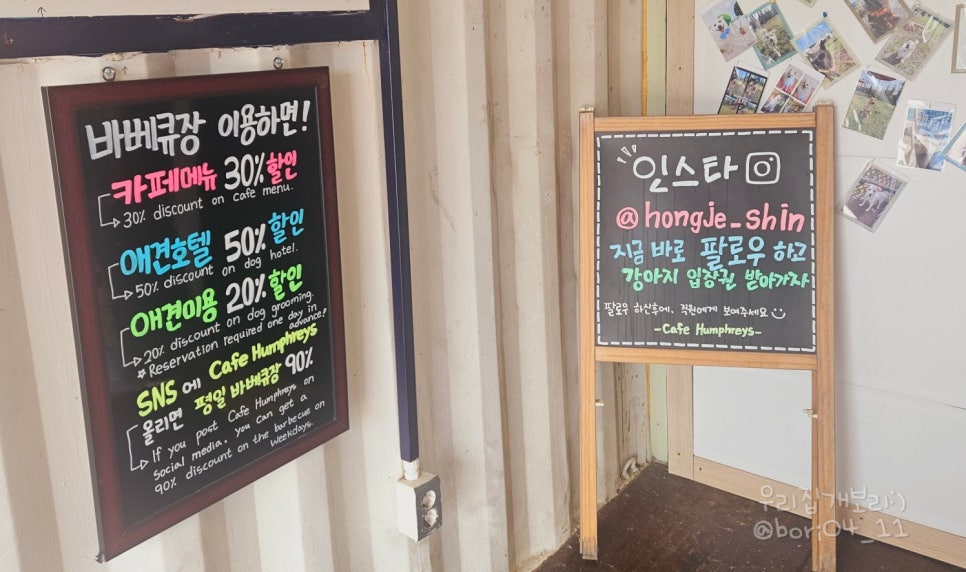 바베큐장 이용하면!
카페메뉴 30% 할인
30% discount on cafe menu.
애견호텔 50% 할인
50% discount on dog hotel.
애견미용 20% 할인
20% discount on dog grooming.
☆ Reservation required one day in
advance!
SNS에 Cafe Humphreys
올리면 평일 바베큐장 90%
If you post Cafe Humphreys on
social media, you can get a
90% discount on the barbecue on
weekdays.
인스타
@hongje_shin
지금 바로 팔로우 하고
강아지 입장권 받아가자
팔로우 하신후에, 직원에게 보여주세요
-Cafe Humphreys-
우리집개보리:)
@bori04_11